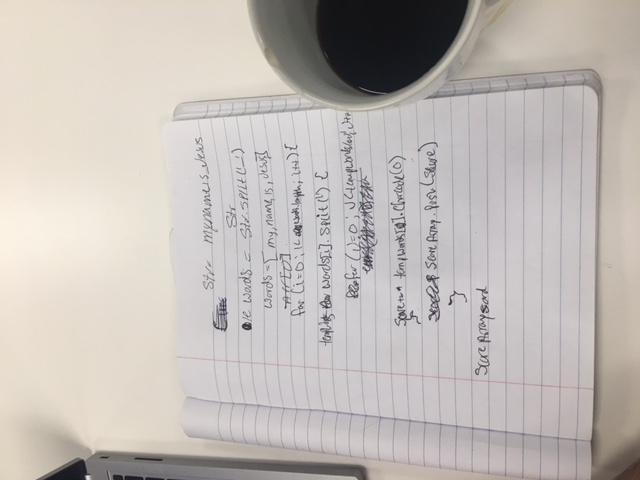 Str= mynameis_Jesus
Str
words = Str.split('_')
words = [my,name,is,Jesus]
for (i=0; i< words.length; i++){
words[i].split('') {
for (j=0; J<
Score += tempwords[0].Charcode(0)
}
Score Array.Push(Score)
}
Score Array